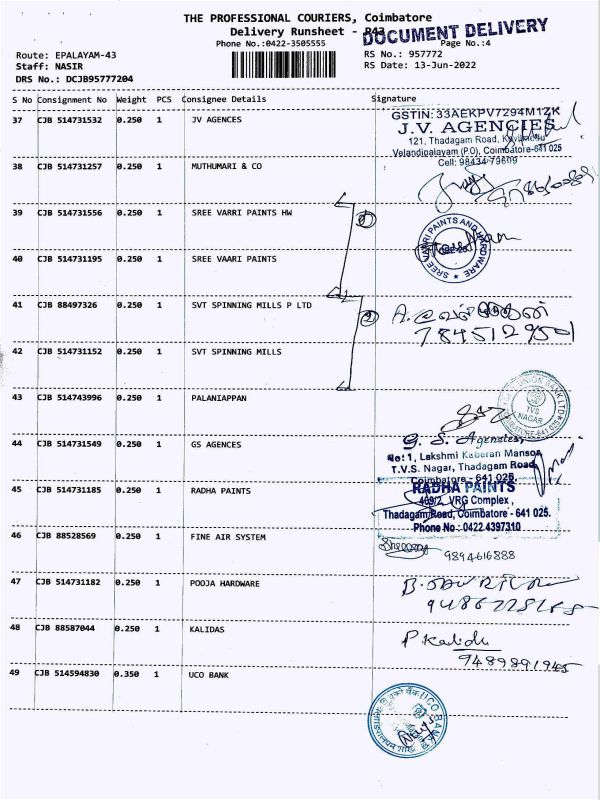 THE PROFESSIONAL COURIERS, Coimbatore
Delivery Runsheet - R43
DOCUMENT DELIVERY
Phone No.:0422-3505555
Page No.:4
Route: EPALAYAM-43
RS No.: 957772
Staff: NASIR
RS Date: 13-Jun-2022
DRS No.: DCJB95777204
S No Consignment No Weight PCS Consignee Details Signature
37 CJB 514731532 0.250 1 JV AGENCES
GSTIN: 33AEKPV7294M1ZK
J.V. AGENCIES
121, Thadagam Road,
Velandipalayam (PO), Coimbatore-641 025
Cell: 98434 79609
38 CJB 514731257 0.250 1 MUTHUMARI & CO
39 CJB 514731556 0.250 1 SREE VARRI PAINTS HW
1
SREE VAARI PAINTS AND HARDWARE
40 CJB 514731195 0.250 1 SREE VAARI PAINTS
41 CJB 88497326 0.250 1 SVT SPINNING MILLS P LTD
2
7845129501
42 CJB 514731152 0.250 1 SVT SPINNING MILLS
43 CJB 514743996 0.250 1 PALANIAPPAN
UNION BANK LTD
TVS
NAGAR
44 CJB 514731549 0.250 1 GS AGENCES
G. S. Agencies,
No: 1, Lakshmi Kuberan Mansor,
T.V.S. Nagar, Thadagam Road,
Coimbatore - 641 025.
45 CJB 514731185 0.250 1 RADHA PAINTS
RADHA PAINTS
409/2, VRG Complex,
Thadagam Road, Coimbatore - 641 025.
Phone No : 0422 4397310
46 CJB 88528569 0.250 1 FINE AIR SYSTEM
9894616888
47 CJB 514731182 0.250 1 POOJA HARDWARE
48 CJB 88587044 0.250 1 KALIDAS
P. Kalidas
9489891945
49 CJB 514594830 0.350 1 UCO BANK
UCO BANK